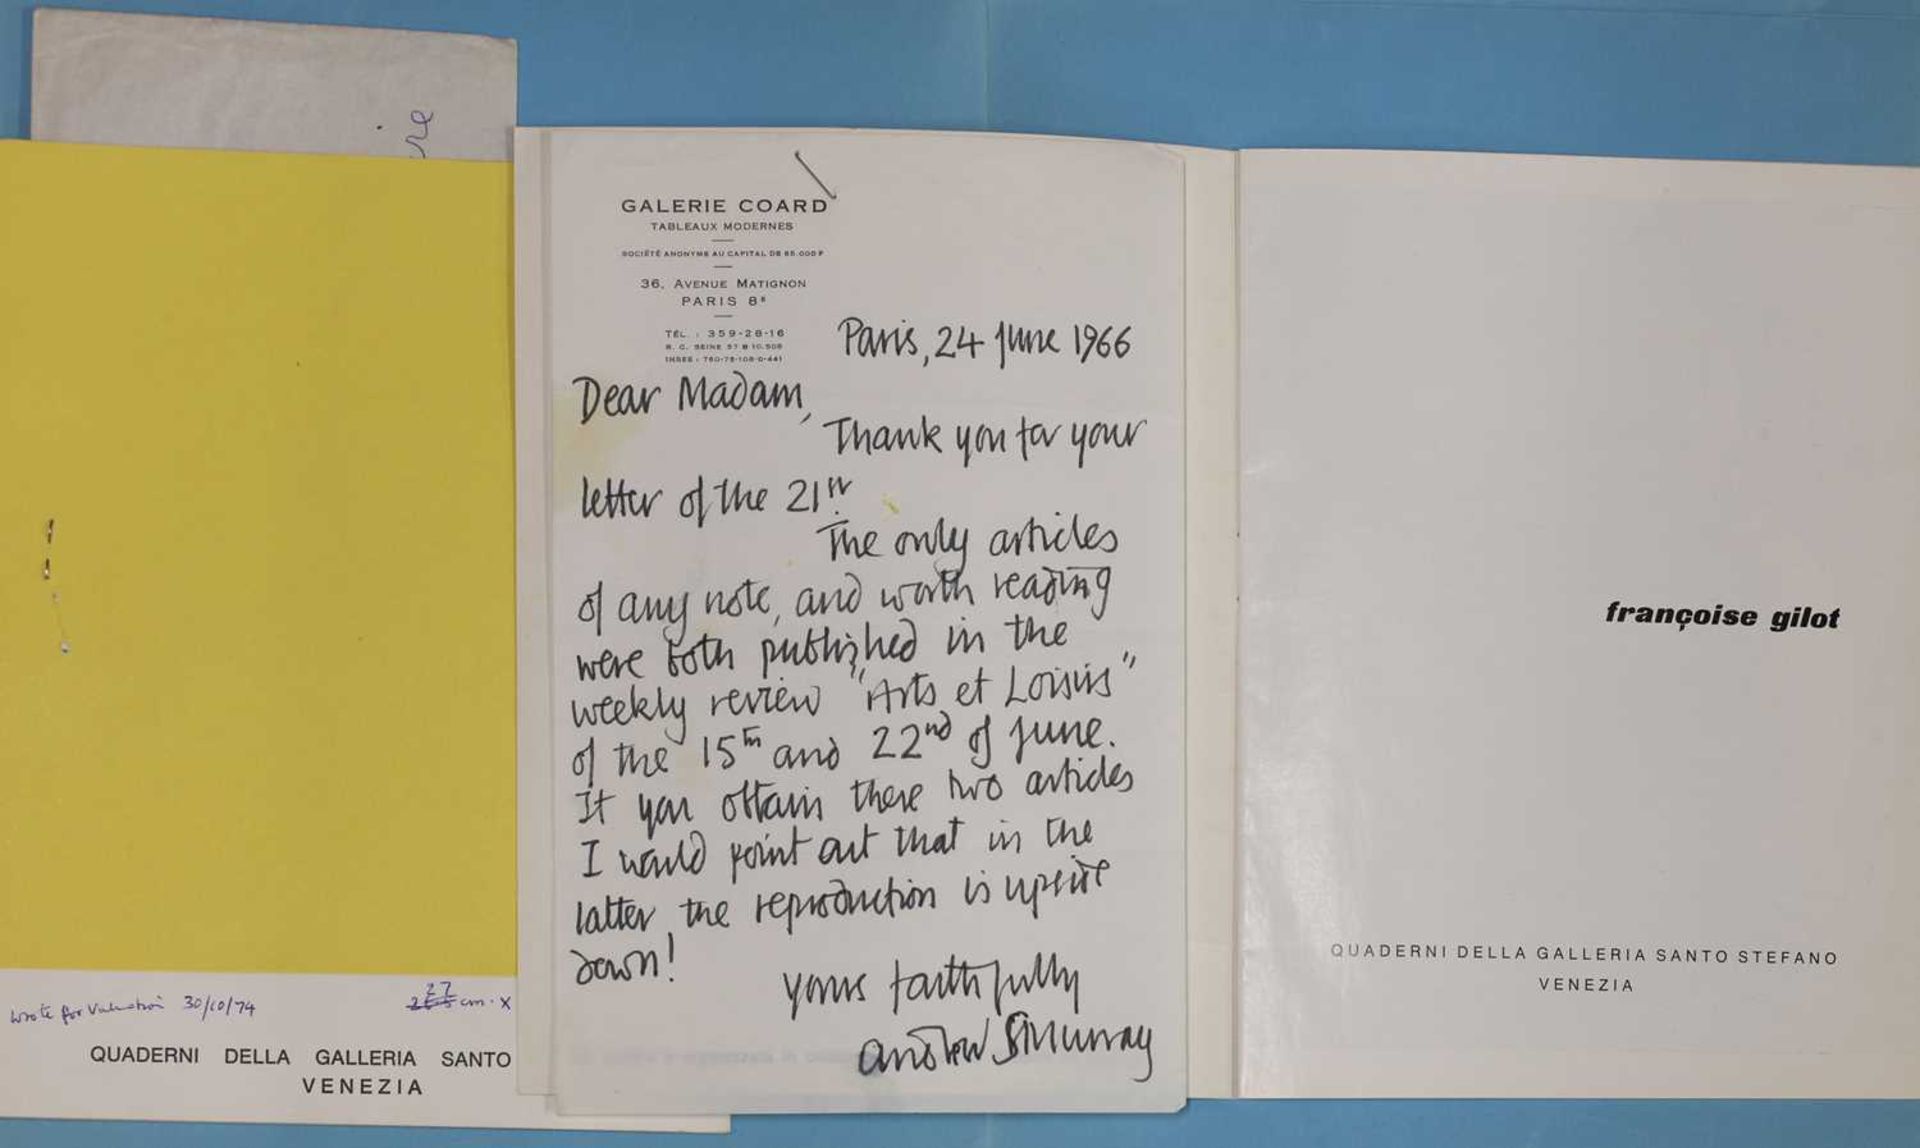 GALERIE COARD
TABLEAUX MODERNES
SOCIÉTÉ ANONYME AU CAPITAL DE 85.000 F
36, AVENUE MATIGNON
PARIS 8e
TÉL. : 359-28-16
R. C. SEINE 57 B 10.508
INSEE : 780-75-108-0-441
Paris, 24 June 1966
Dear Madam,
Thank you for your
letter of the 21st.
The only articles
of any note, and worth reading
were both published in the
weekly review "Arts et Loisirs"
of the 15th and 22nd of June.
If you obtain these two articles
I would point out that in the
latter, the reproduction is upside
down!
Yours faithfully
Andrew S Murray
wrote for Valuation 30/10/74
27
cm. X
QUADERNI DELLA GALLERIA SANTO
VENEZIA
françoise gilot
QUADERNI DELLA GALLERIA SANTO STEFANO
VENEZIA